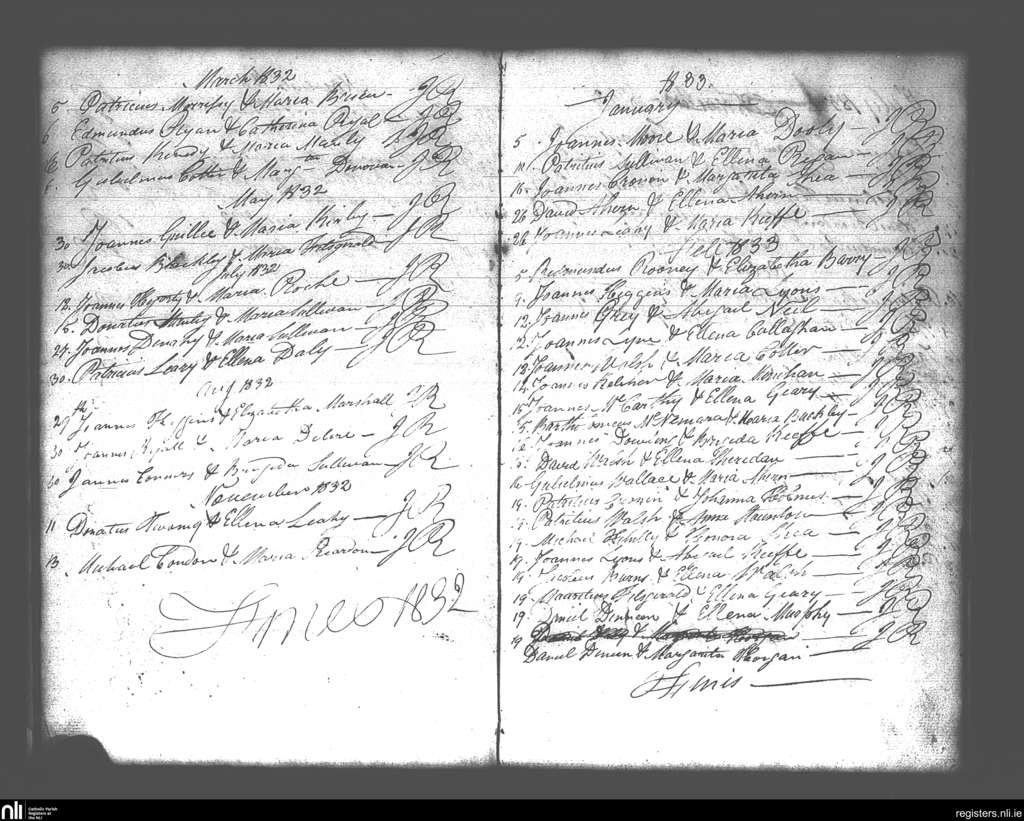 March 1832
5 Patricius Morrissy & Maria Brien - JR
6 Edmundus Ryan & Catherina Ryal - JR
6 Patritius & Maria JR
6. Gulielmus Cotter & Marg ta Donovan - JR
May 1832
30 Joannes Guillee & Maria Kirby - JR
30 & Maria Fitzgerald - JR
July 1832
12. Joannes & Maria Roche - JR
16. Donatus & Maria Sullivan JR
27. Joannes Denahy & Maria Sullivan - JR
30. Patricius Leary & Ellena Daly - JR
Aug 1832
29 th Joannes & Elizabetha Marshall JR
30 Joannes Ryall & Maria - JR
30 Joannes Connors & Brigida Sullivan - JR
November 1832
11 Donatus & Ellena Leahy - JR
13. Michael Condon & Maria Reardon - JR
Finis 1832
1833.
January
5 Joannes Moore & Maria Dooly - JR
Patritius Sullivan & Ellena Regan - JR
16. Joannes Cronon & Margarita Shea - JR
26 David Ahern & Ellena Ahern - JR
26. Joannes Leary & Maria Keeffe - JR
Feb 1833
5. Redmundus Rooney & Elizabetha Barry - JR
9. Joannes Higgins & Maria Lyons - JR
12. Joannes Grey & Abigail Neil - JR
12. Joannes Lyne & Ellena Callaghan - JR
12. Joannes Walsh & Maria Cotter - JR
14. Joannes Keleher & Maria Minihan - JR
15 Joannes McCarthy & Ellena Geary - JR
15. McNemara & Maria Buckley - JR
Joannes & Brigida Keeffe - JR
David Walsh & Ellena Sheridan - JR
16. Gulielmus Wallace & Maria Ahern - JR
19. Patritius & Johanna - JR
Patritius Walsh & Anna Staunton - JR
19. Michael & Honora Shea - JR
19. Joannes Lyons & Abigail Keeffe - JR
19. Burns & Ellena Walsh - JR
19. Mauritius Fitzgerald & Ellena Geary - JR
19. Daniel & Ellena Murphy - JR
19
Daniel Dineen & Margarita Horgan -
Finis
nli Catholic Parish Registers at the NLI
registers.nli.ie